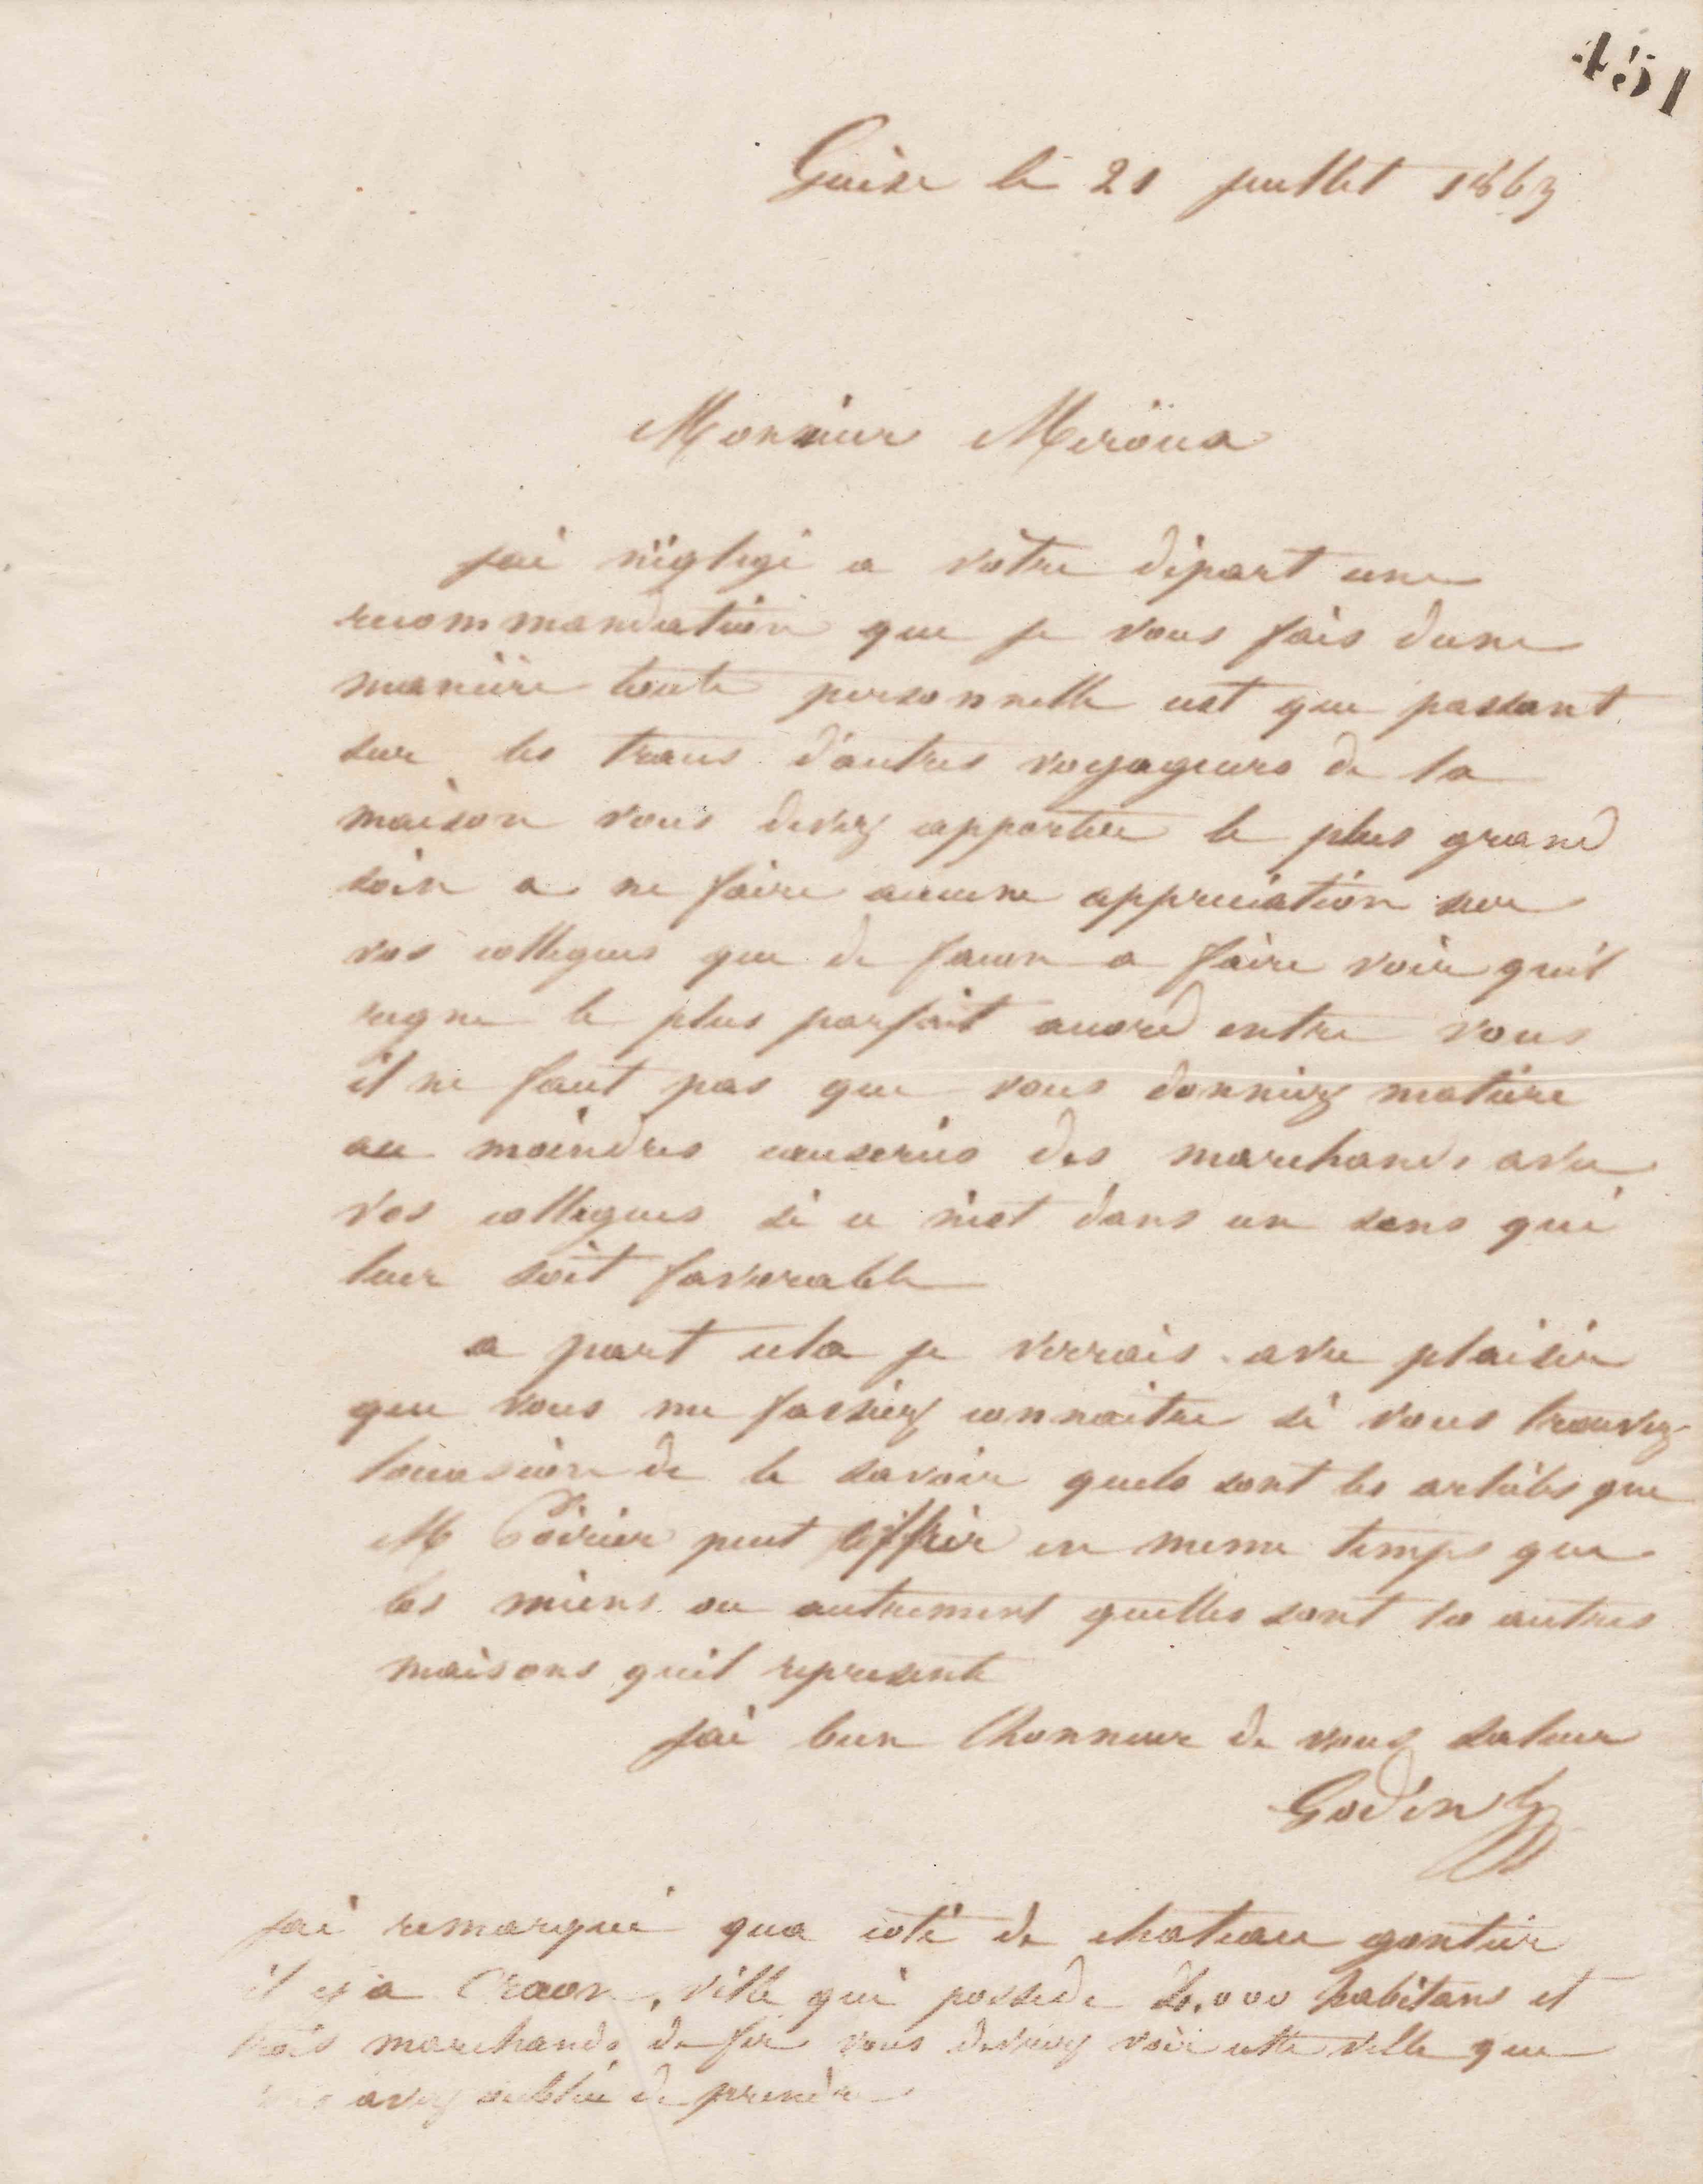 451
Guise le 21 juillet 1863
Monsieur
jai négligé a votre départ une
recommandation que je vous fais dune
manière toute personnelle cest que passant
sur les traces d'autres voyageurs de la
maison vous devez apporter le plus grand
soin a ne faire aucune appreciation sur
vos collegues que de facon a faire voir quil
regne le plus parfait accord entre vous
il ne faut pas que vous donniez matière
au moindres causeries des marchands avec
vos collegues si ce nest dans un sens qui
leur soit favorable
a part cela je verrais avec plaisir
que vous me fassiez connaitre si vous trouvez
loccasion de le savoir quels sont les articles que
M Poirier peut offrir en meme temps que
les miens ou autrement quelles sont les autres
maisons quil represente
jai bien lhonneur de vous saluer
Godin
jai remarqué qua coté de chateau gontier
il y a Craon, ville qui possede habitans et
trois marchands de fer vous devriez voir cette ville que
avez oublié de prendre